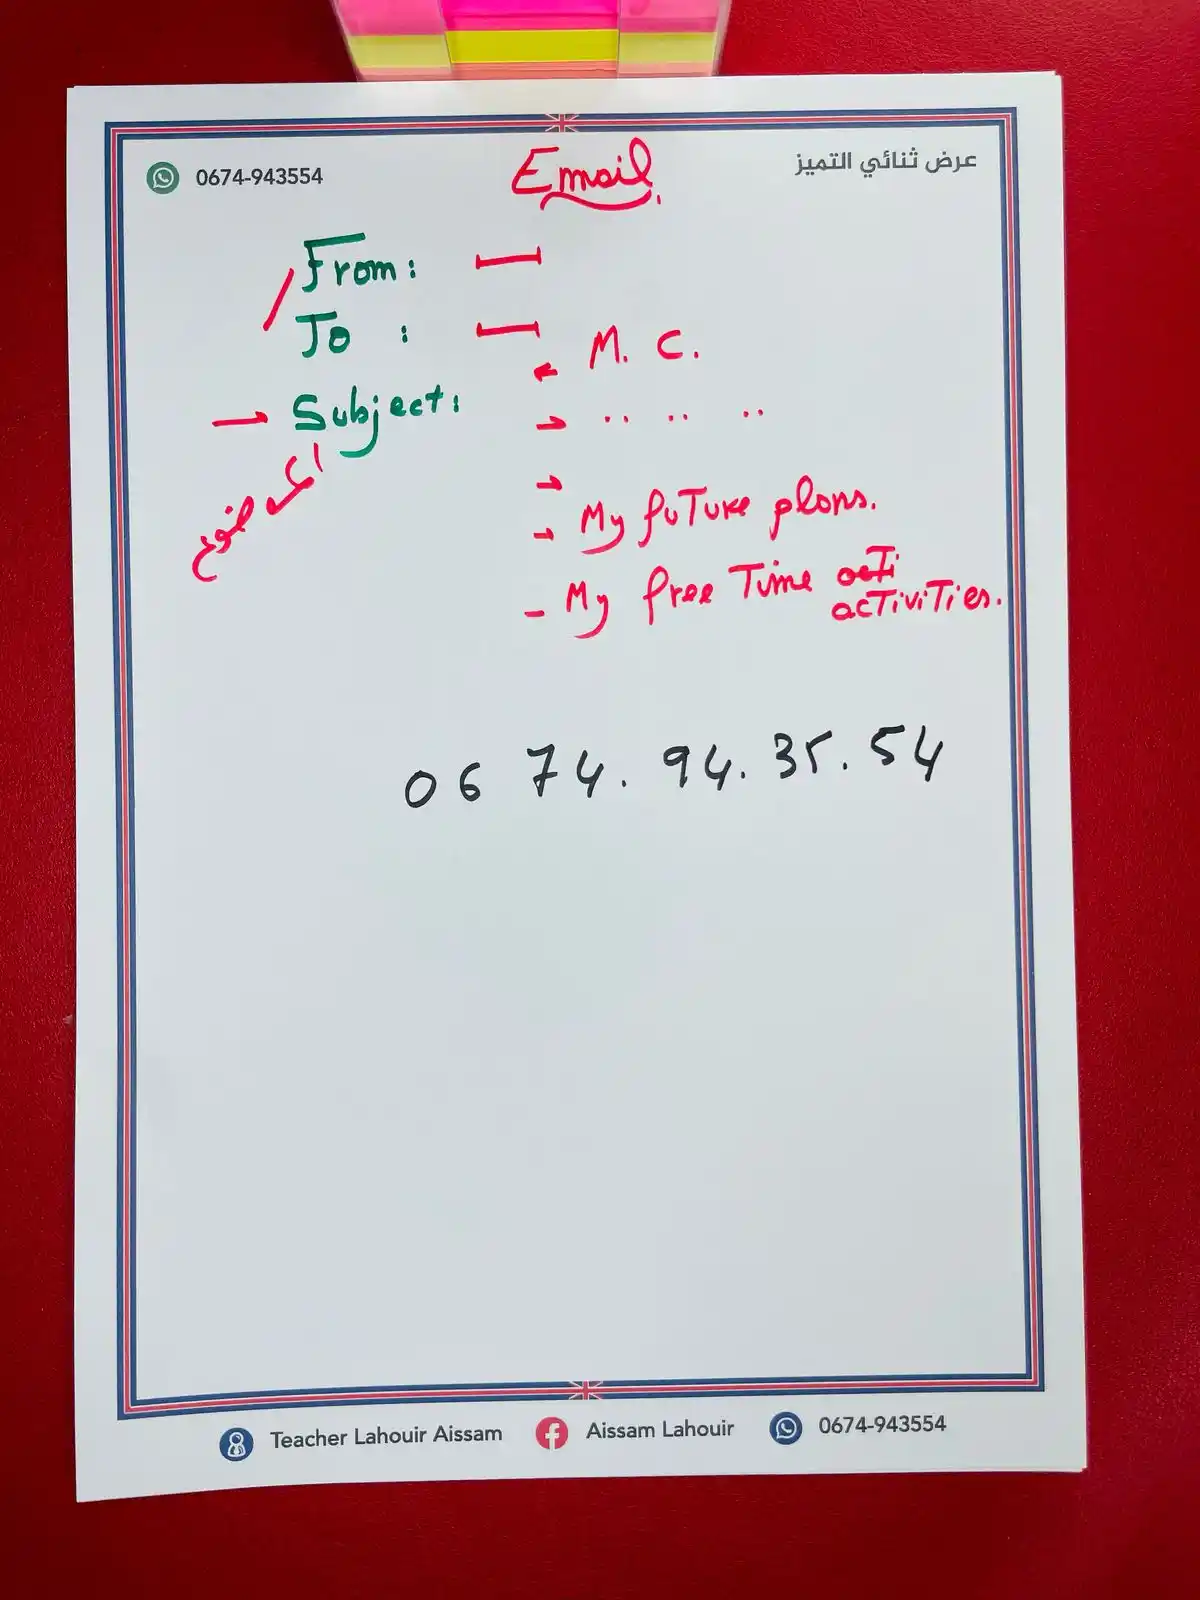 0674-943554
Email
عرض ثنائي التميز
From:
To :
M. C.
Subject:
.. .. ..
My future plans.
- My free Time acti
activities.
06 74. 94. 35. 54
Teacher Lahouir Aissam
Aissam Lahouir
0674-943554